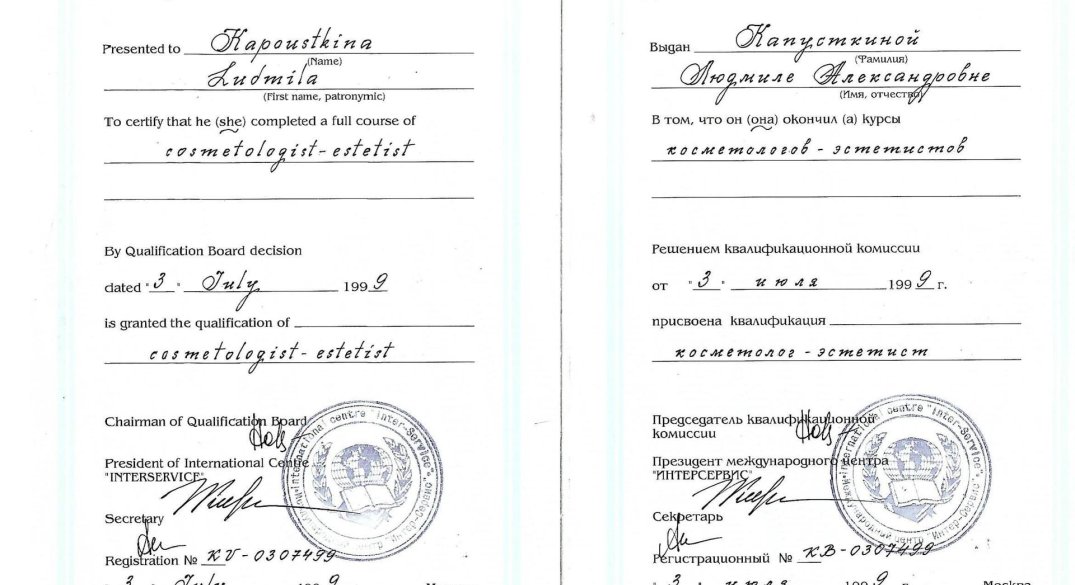 Presented to Kapoustkina
(Name)
Ludmila
(First name, patronymic)
To certify that he (she) completed a full course of
cosmetologist-estetist
By Qualification Board decision
dated "3" July 1999
is granted the qualification of
cosmetologist-estetist
Chairman of Qualification Board
President of International Centre
"INTERSERVICE"
Secretary
Registration № KV-0307499
"3" July 1999
International centre "Inter-Service"
Выдан Капусткиной
(Фамилия)
Людмиле Александровне
(Имя, отчество)
В том, что он (она) окончил (а) курсы
косметологов - эстетистов
Решением квалификационной комиссии
от "3" июля 1999 г.
присвоена квалификация
косметолог - эстетист
Председатель квалификационной
комиссии
Президент международного центра
"ИНТЕРСЕРВИС"
Секретарь
Регистрационный № КВ-0307499
"3" июля 1999 г. Москва
International centre "Inter-Service"
Международный центр "Интер-Сервис"